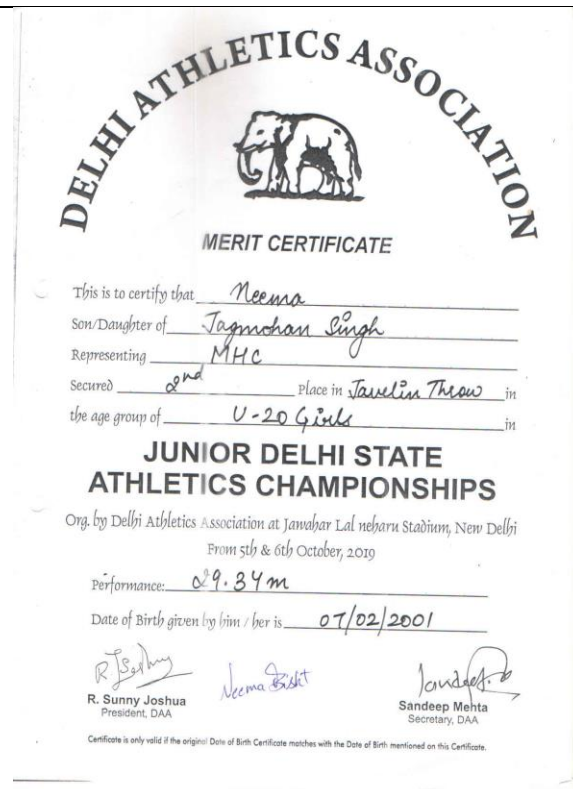 DELHI ATHLETICS ASSOCIATION
MERIT CERTIFICATE
This is to certify that Neema
Son/Daughter of Jagmohan Singh
Representing MHC
Secured 2nd Place in Javelin Throw in
the age group of U-20 Girls in
JUNIOR DELHI STATE
ATHLETICS CHAMPIONSHIPS
Org. by Delhi Athletics Association at Jawahar Lal neharu Stadium, New Delhi
From 5th & 6th October, 2019
Performance: 29.34m
Date of Birth given by him / her is 07/02/2001
Neema Bisht
R. Sunny Joshua Sandeep Mehta
President, DAA Secretary, DAA
Certificate is only valid if the original Date of Birth Certificate matches with the Date of Birth mentioned on this Certificate.